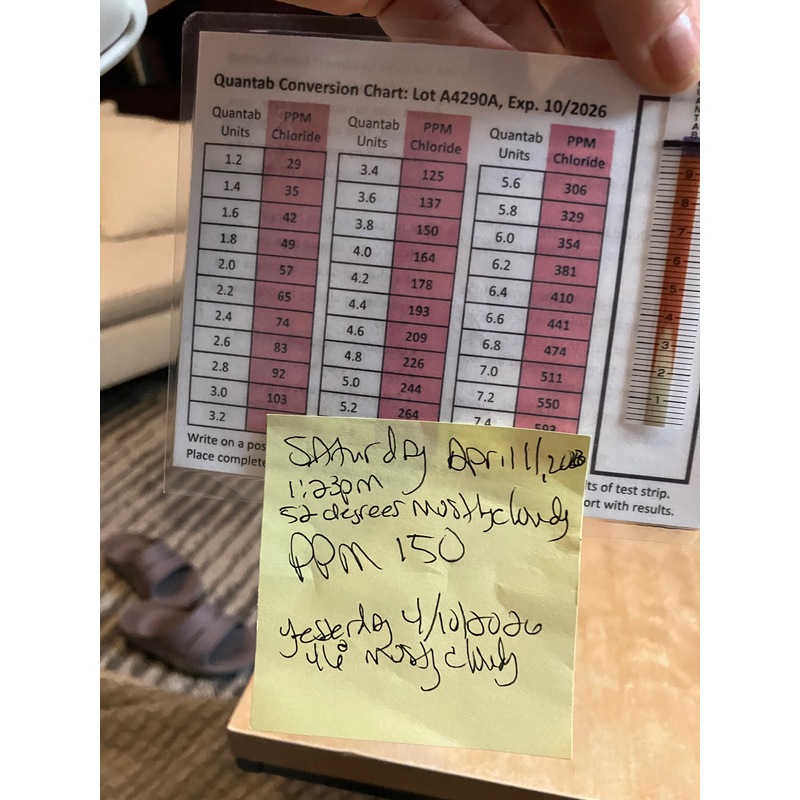 Quantab Conversion Chart: Lot A4290A, Exp. 10/2026
Quantab Units PPM Chloride Quantab Units PPM Chloride Quantab Units PPM Chloride
1.2 29 3.4 125 5.6 306
1.4 35 3.6 137 5.8 329
1.6 42 3.8 150 6.0 354
1.8 49 4.0 164 6.2 381
2.0 57 4.2 178 6.4 410
2.2 65 4.4 193 6.6 441
2.4 74 4.6 209 6.8 474
2.6 83 4.8 226 7.0 511
2.8 92 5.0 244 7.2 550
3.0 103 5.2 264 7.4 593
3.2
Write on a pos
Place complete
ts of test strip.
ort with results.
QUANTAB
9
8
7
6
5
4
3
2
1
Saturday April 11,
1:23pm
52 degrees mostly cloudy
PPM 150
yesterday 4/10/2026
46° mostly cloudy